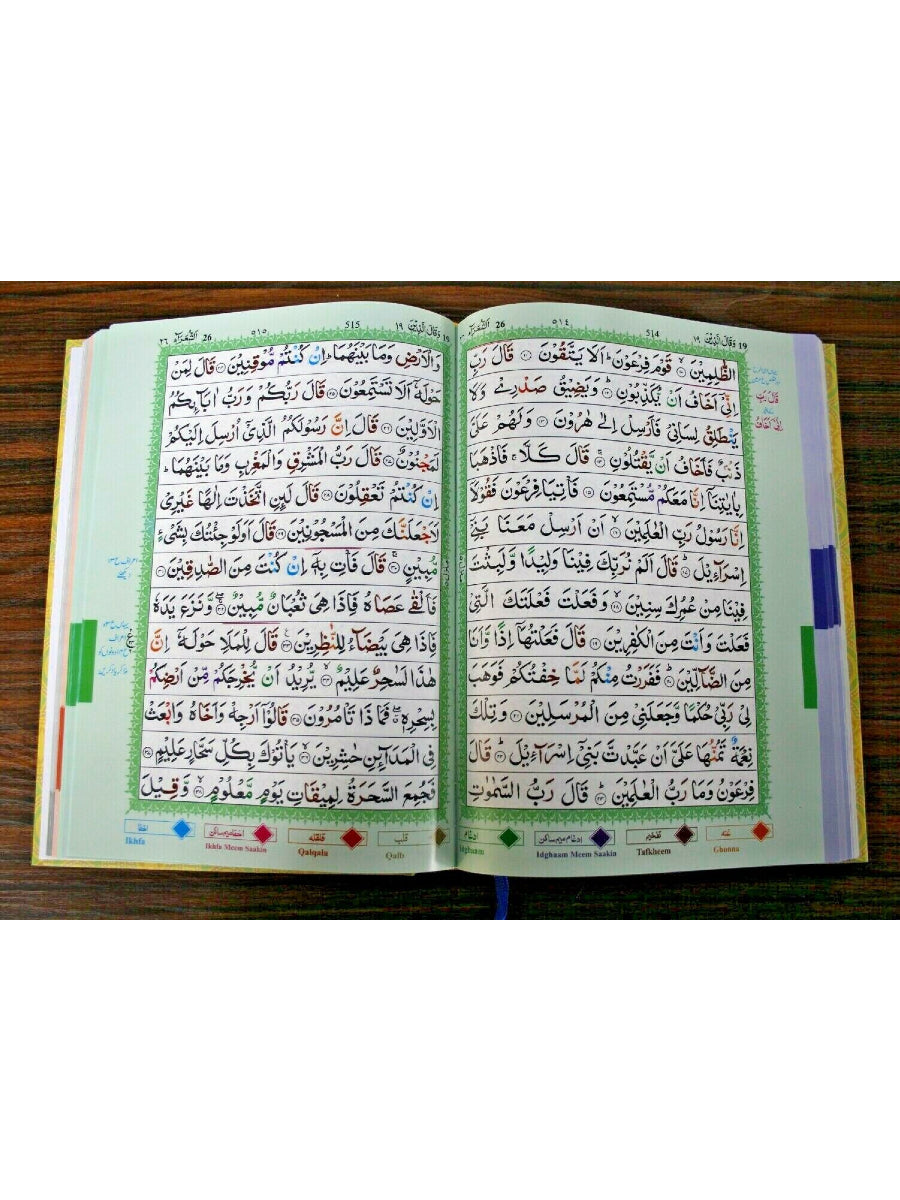 19 وَقَالَ الَّذِيْنَ ١٩
514
٥١٤
26 اَلشُّعَرَآء
الظّٰلِمِيْنَ ۙ۝١٠ قَوْمَ فِرْعَوْنَ ؕ اَلَا يَتَّقُوْنَ ۝١١ قَالَ رَبِّ
اِنِّيْۤ اَخَافُ اَنْ يُّكَذِّبُوْنِ ؕ۝١٢ وَيَضِيْقُ صَدْرِيْ وَلَا
يَنْطَلِقُ لِسَانِيْ فَاَرْسِلْ اِلٰى هٰرُوْنَ ۝١٣ وَلَهُمْ عَلَيَّ
ذَنْۢبٌ فَاَخَافُ اَنْ يَّقْتُلُوْنِ ۚ۝١٤ قَالَ كَلَّا ۚ فَاذْهَبَا
بِاٰيٰتِنَاۤ اِنَّا مَعَكُمْ مُّسْتَمِعُوْنَ ۝١٥ فَاْتِيَا فِرْعَوْنَ فَقُوْلَاۤ
اِنَّا رَسُوْلُ رَبِّ الْعٰلَمِيْنَ ۙ۝١٦ اَنْ اَرْسِلْ مَعَنَا بَنِيْۤ
اِسْرَآءِيْلَ ؕ۝١٧ قَالَ اَلَمْ نُرَبِّكَ فِيْنَا وَلِيْدًا وَّلَبِثْتَ
فِيْنَا مِنْ عُمُرِكَ سِنِيْنَ ۙ۝١٨ وَفَعَلْتَ فَعْلَتَكَ الَّتِيْ
فَعَلْتَ وَاَنْتَ مِنَ الْكٰفِرِيْنَ ۝١٩ قَالَ فَعَلْتُهَاۤ اِذًا وَّاَنَا
مِنَ الضَّآلِّيْنَ ؕ۝٢٠ فَفَرَرْتُ مِنْكُمْ لَمَّا خِفْتُكُمْ فَوَهَبَ
لِيْ رَبِّيْ حُكْمًا وَّجَعَلَنِيْ مِنَ الْمُرْسَلِيْنَ ۝٢١ وَتِلْكَ
نِعْمَةٌ تَمُنُّهَا عَلَيَّ اَنْ عَبَّدْتَّ بَنِيْۤ اِسْرَآءِيْلَ ؕ۝٢٢ قَالَ
فِرْعَوْنُ وَمَا رَبُّ الْعٰلَمِيْنَ ؕ۝٢٣ قَالَ رَبُّ السَّمٰوٰتِ
قَالَ رَبِّ
اِنِّيْۤ اَخَافُ
غنه
Ghunna
تفخيم
Tafkheem
ادغام ميم ساكن
Idghaam Meem Saakin
ادغام
Idghaam
19 وَقَالَ الَّذِيْنَ ١٩
515
٥١٥
26 اَلشُّعَرَآء ٢٦
وَالْاَرْضِ وَمَا بَيْنَهُمَا ؕ اِنْ كُنْتُمْ مُّوْقِنِيْنَ ۝٢٤ قَالَ لِمَنْ
حَوْلَهٗۤ اَلَا تَسْتَمِعُوْنَ ۝٢٥ قَالَ رَبُّكُمْ وَرَبُّ اٰبَآئِكُمُ
الْاَوَّلِيْنَ ۝٢٦ قَالَ اِنَّ رَسُوْلَكُمُ الَّذِيْۤ اُرْسِلَ اِلَيْكُمْ
لَمَجْنُوْنٌ ۝٢٧ قَالَ رَبُّ الْمَشْرِقِ وَالْمَغْرِبِ وَمَا بَيْنَهُمَا ؕ
اِنْ كُنْتُمْ تَعْقِلُوْنَ ۝٢٨ قَالَ لَئِنِ اتَّخَذْتَ اِلٰهًا غَيْرِيْ
لَاَجْعَلَنَّكَ مِنَ الْمَسْجُوْنِيْنَ ۝٢٩ قَالَ اَوَلَوْ جِئْتُكَ بِشَيْءٍ
مُّبِيْنٍ ۚ۝٣٠ قَالَ فَاْتِ بِهٖۤ اِنْ كُنْتَ مِنَ الصّٰدِقِيْنَ ۝٣١
فَاَلْقٰى عَصَاهُ فَاِذَا هِيَ ثُعْبَانٌ مُّبِيْنٌ ۚۖ۝٣٢ وَّنَزَعَ يَدَهٗ
فَاِذَا هِيَ بَيْضَآءُ لِلنّٰظِرِيْنَ ۝٣٣ قَالَ لِلْمَلَاِ حَوْلَهٗۤ اِنَّ
هٰذَا لَسٰحِرٌ عَلِيْمٌ ۙ۝٣٤ يُّرِيْدُ اَنْ يُّخْرِجَكُمْ مِّنْ اَرْضِكُمْ
بِسِحْرِهٖ ۖۗ فَمَاذَا تَاْمُرُوْنَ ۝٣٥ قَالُوْۤا اَرْجِهْ وَاَخَاهُ وَابْعَثْ
فِي الْمَدَآئِنِ حٰشِرِيْنَ ۙ۝٣٦ يَاْتُوْكَ بِكُلِّ سَحَّارٍ عَلِيْمٍ ۝٣٧
فَجُمِعَ السَّحَرَةُ لِمِيْقَاتِ يَوْمٍ مَّعْلُوْمٍ ۙ۝٣٨ وَّقِيْلَ
قلب
Qalb
قلقله
Qalqala
اخفا ميم ساكن
Ikhfa Meem Saakin
اخفا
Ikhfa